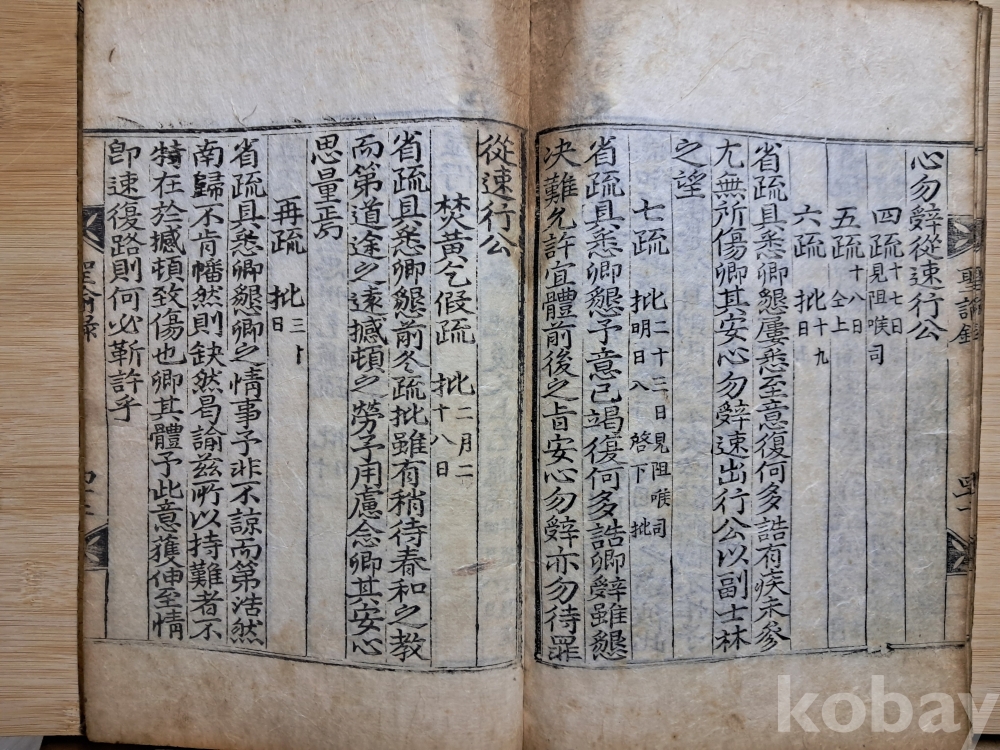 心勿辭從速行公
四疏十七日見阻喉司
五疏十八日仝上
六疏 批十九日
省疏具悉卿懇屢悉至意復何多誥有疾未參
尤無所傷卿其安心勿辭速出行公以副士林
之望
七疏 批二十二日見阻喉司明日入啓下批
省疏具悉卿懇予意已竭復何多誥卿辭雖懇
決難允許宜體前後之旨安心勿辭亦勿待罪
從速行公
焚黃乞假疏 批二月二十八日
省疏具悉卿懇前冬疏批雖有稍待春和之教
而第道途之遠撼頓之勞予用慮念卿其安心
思量焉
再疏 批三十日
省疏具悉卿懇卿之情事予非不諒而第浩然
南歸不肯幡然則缺然曷諭玆所以持難者不
特在於撼頓致傷也卿其體予此意獲伸至情
卽速復路則何必靳許乎
聖諭錄
四十一
聖諭錄
四十二
kobay